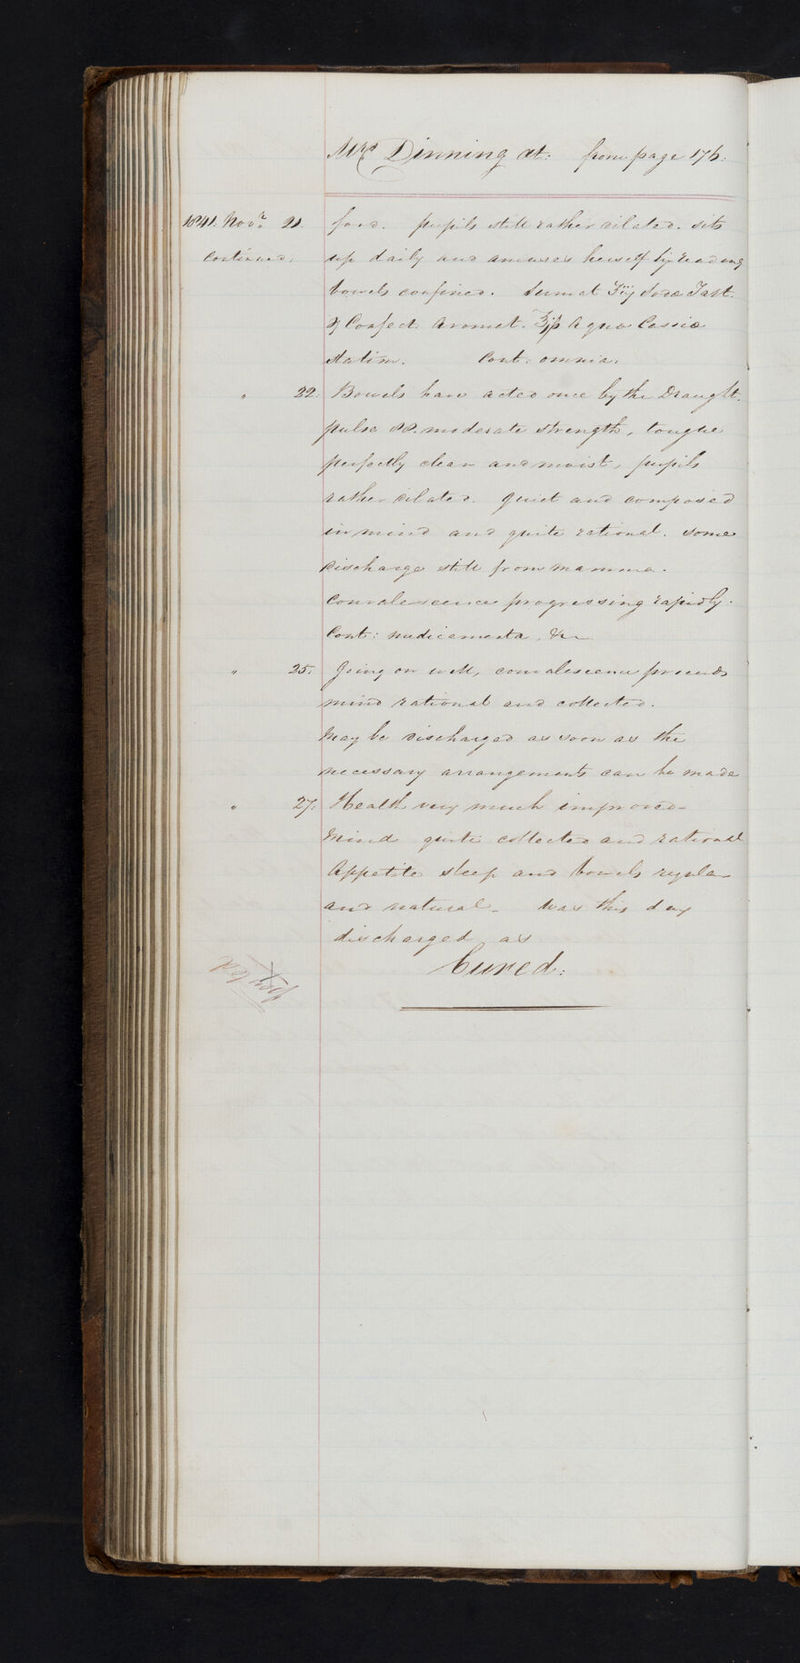 Mrs Dinning æt: from page 176.
1841. Novr. 21. food. pupils still rather dilated. sits
continued. up daily and amuses herself by reading
bowels confined. Sumat ʒiij Sodæ Tart.
& Confect. Aromat. Aqua Cassiæ
statim. Cont. omnia.
" 22. Bowels have acted once by the Draught.
pulse 88. moderate strength, tongue
perfectly clean and moist, pupils
rather dilated. quiet and composed
in mind and quite rational. some
discharge still from mamma.
convalescence progressing rapidly.
Cont: medicamenta, &c
" 25. Going on well, convalescence proceeds
mind rational and collected.
May be discharged as soon as the
necessary arrangements can be made
" 27. Health very much improved
Mind quite collected and rational
Appetite sleep and bowels regular
and natural. Was this day
discharged as
Cured.